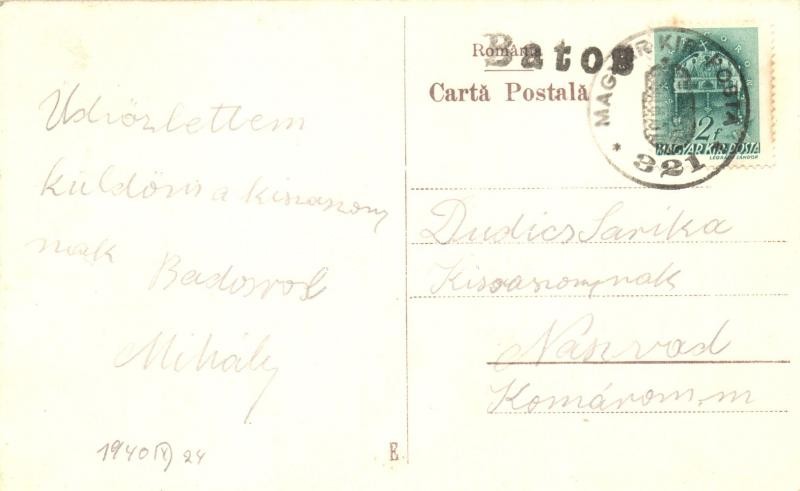 Üdvözlettem
küldöm a kisaszony
nak
Mihály
1940 24
E
România
Batos
Carta Postală
MAGYAR KIR. POSTA
* 321 *
2f
MAGYAR KIR. POSTA
LÉGRÁDY SÁNDOR
Dudics Sarika
Kisasszonynak
Naszvad
Komárom m